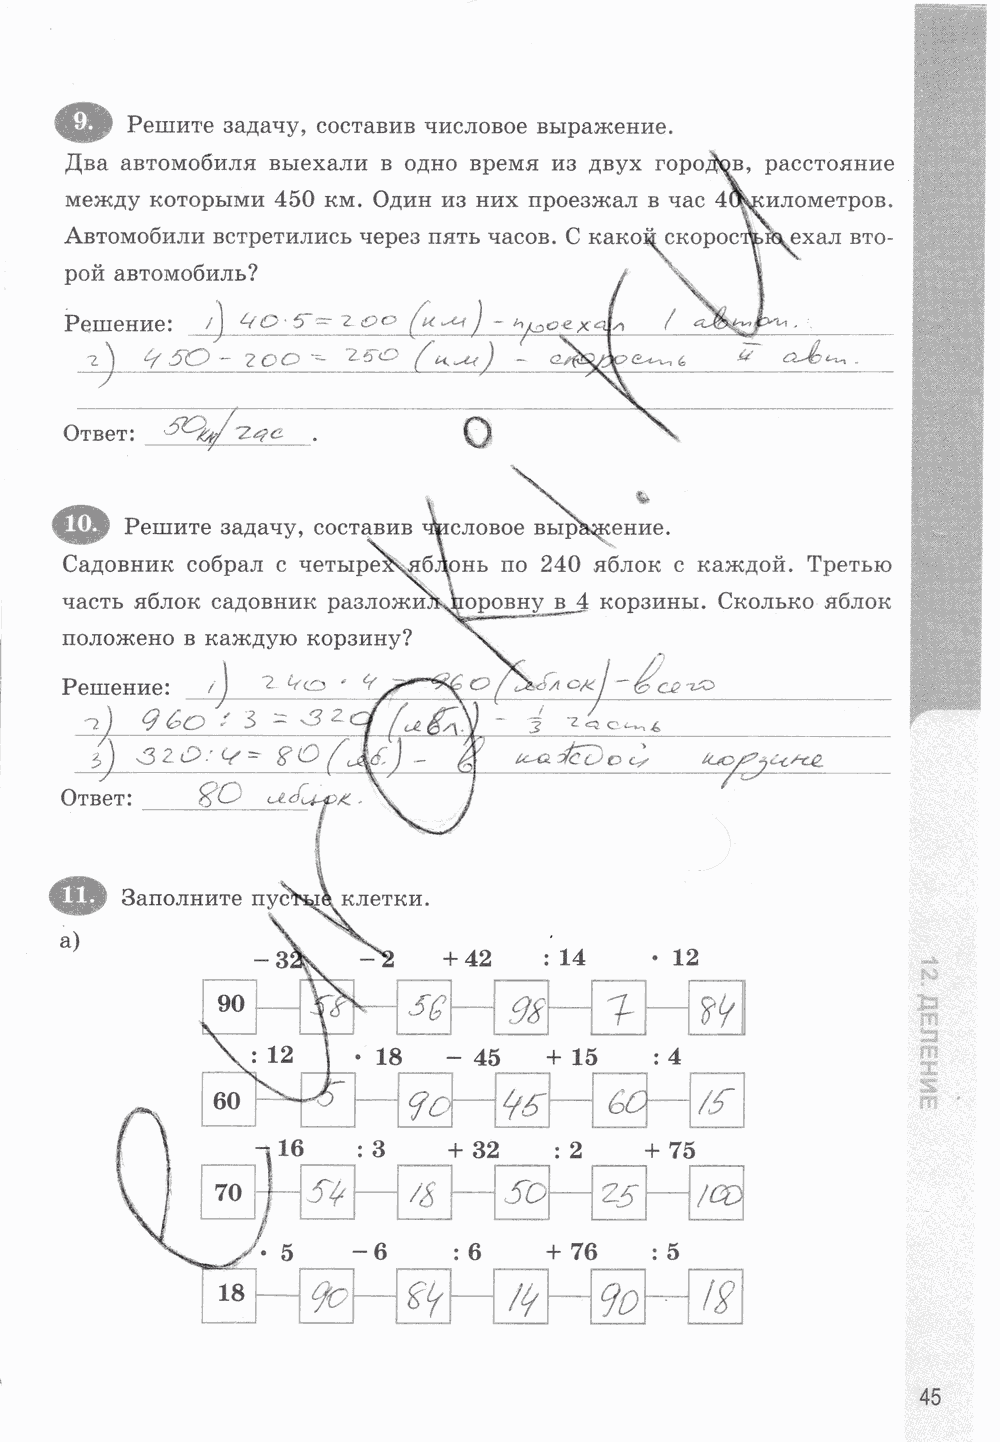 9. Решите задачу, составив числовое выражение.
Два автомобиля выехали в одно время из двух городов, расстояние
между которыми 450 км. Один из них проезжал в час 40 километров.
Автомобили встретились через пять часов. С какой скоростью ехал вто-
рой автомобиль?
Решение: 1) 40·5=200 (км) - проехал I автом.
2) 450 - 200 = 250 (км) - скорость II авт.
Ответ: 50км/час .
10. Решите задачу, составив числовое выражение.
Садовник собрал с четырех яблонь по 240 яблок с каждой. Третью
часть яблок садовник разложил поровну в 4 корзины. Сколько яблок
положено в каждую корзину?
Решение: 1) 240 · 4 = 960 (яблок) - всего
2) 960 : 3 = 320 (ябл.) - 1/3 часть
3) 320:4= 80 (яб.) - в каждой корзине
Ответ: 80 яблок.
11. Заполните пустые клетки.
а)
- 32 - 2 + 42 : 14 · 12
90 58 56 98 7 84
: 12 · 18 - 45 + 15 : 4
60 5 90 45 60 15
- 16 : 3 + 32 : 2 + 75
70 54 18 50 25 100
· 5 - 6 : 6 + 76 : 5
18 90 84 14 90 18
12. ДЕЛЕНИЕ
45